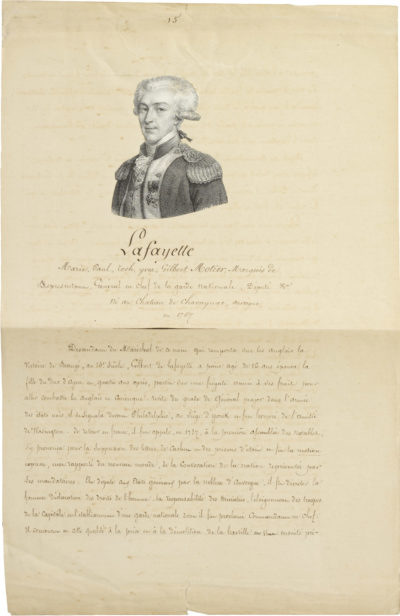 15
Lafayette
Marie, Paul, Gilbert Motier, Marquis de
Général en Chef de la garde nationale, Député
né au Chateau de Chavagnac, auvergne,
en 1757
Descendant du Maréchal de ce nom qui remporta sur les anglais la
victoire de Baugé, au siècle, Gilbert de Lafayette a peine agé de 16 ans épousa la
fille du Duc d'Ayen
aller combattre les anglais en Amerique; revêtu du grade de Général major dans l'armée
des états unis, il se signala devant Philadelphie, au siège d' et fut honoré de l'amitié
de Washington. de retour en france, il fut appelé, en 1787, à la première assemblée des notables,
y provoqua pour la suppression des lettres de Cachet et des prisons d'état et fit la motion
de la Convocation de la nation représentée par
ses mandataires. Député aux Etats généraux par la noblesse d'Auvergne il fit décréter la
fameuse déclaration des Droits de l'homme, la responsabilité des Ministres, l'éloignement des troupes
de la Capitale et l'établissement d'une garde nationale dont il fut proclamé Commandant en Chef.
Il concourut en cette qualité à la prise et à la démolition de la bastille ensuite